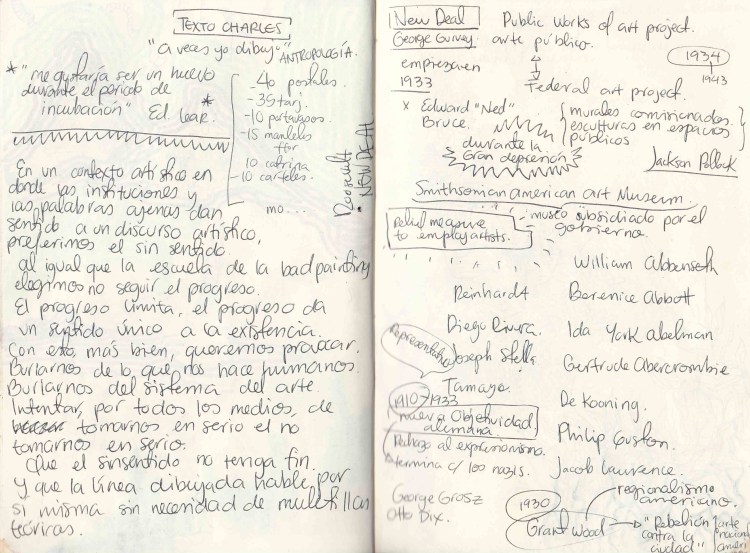 TEXTO CHARLES
"a veces yo dibujo" ANTROPOLOGÍA.
* "me gustaría ser un huevo
durante el período de
incubación" Ed. Lear. *
40 postales.
- 35 tarj.
- 10 portavasos
- 15 manteles
10 catrina
- 10 carteles.
mo...
Roosevelt
• NEW DEAL
En un contexto artístico en
donde las instituciones y
las palabras ajenas dan
sentido a un discurso artístico,
preferimos el sin sentido.
al igual que la escuela de la bad painting
elegimos no seguir el progreso.
El progreso limita, el progreso da
un sentido único a la existencia.
Con esto, más bien, queremos fracasar.
Burlarnos de lo que nos hace humanos.
Burlarnos del sistema del arte.
Intentar, por todos los medios, de
tomarnos en serio el no
tomarnos en serio.
Que el sinsentido no tenga fin.
Y que la línea dibujada hable por
si misma sin necesidad de muletillas
teóricas.
New Deal Public works of art project.
George Gurvey. arte público.
empieza en
1933
1934
1943
Federal art project.
x Edward "Ned"
Bruce.
murales comisionados.
esculturas en espacios
públicos
durante la
Gran depresión
Jackson Pollock
Smithsonian american art Museum.
museo subsidiado por el
gobierno.
Relief measure
to employ artists.
William Abbenseth
Reinhardt Berenice Abbott
Diego Rivera. Ida York Abelman
Joseph Stella Gertrude Abercrombie
Tamayo.
De Kooning.
1910/1933
nueva Objetividad
alemana
Philip Guston.
Rechazo al expresionismo.
termina c/ los nazis.
Jacob Lawrence.
George Grosz
Otto Dix.
1930
regionalismo
americano.
Grant Wood → "Rebelión
contra la
ciudad"
arte